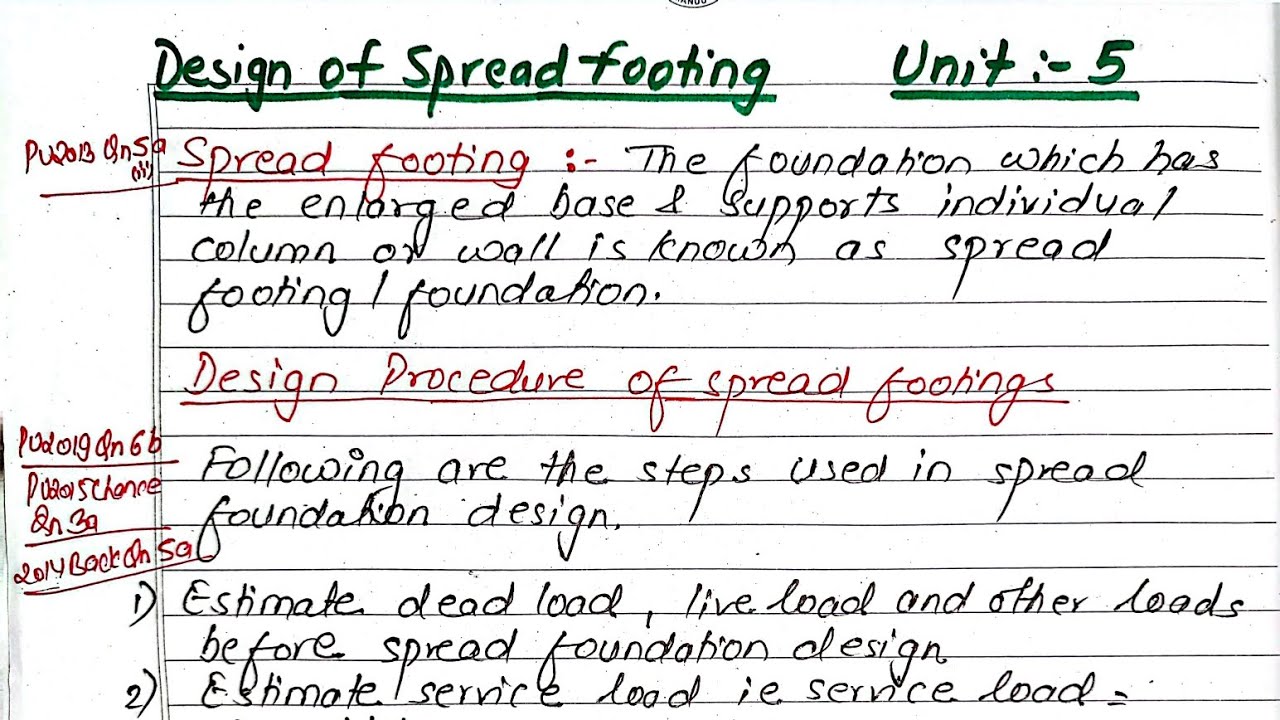 Design of Spread footing Unit :- 5
PU2013 Qn5a
(iii)
Spread footing :- The foundation which has
the enlarged base & supports individual
column or wall is known as spread
footing / foundation.
Design Procedure of spread footings
PU2019 Qn 6b
PU2015 Chance
Qn 3a
2014 Back Qn 5a
Following are the steps used in spread
foundation design.
1) Estimate dead load, live load and other loads
before spread foundation design
2) Estimate service load ie service load =